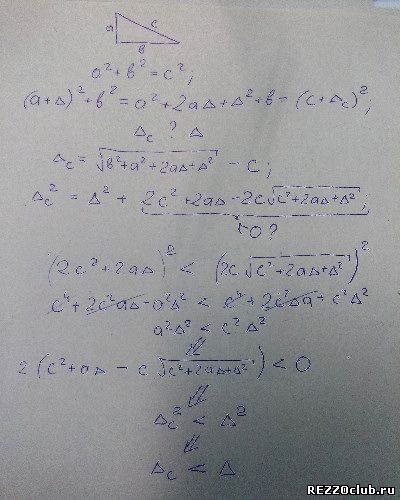 a c
b
a² + b² = c²;
(a+Δ)² + b² = a² + 2aΔ + Δ² + b = (c + Δc)²;
Δc ? Δ
Δc = √(b² + a² + 2aΔ + Δ²) - c;
Δc² = Δ² + 2c² + 2aΔ - 2c√(c² + 2aΔ + Δ²);
0?
(2c² + 2aΔ)² < (2c √(c² + 2aΔ + Δ²))²
c⁴ + 2c²aΔ + a²Δ² < c⁴ + 2c²Δa + c²Δ²
a²Δ² < c²Δ²
⇓
2(c² + aΔ - c √(c² + 2aΔ + Δ²)) < 0
⇓
Δc² < Δ²
⇓
Δc < Δ
REZZOclub.ru